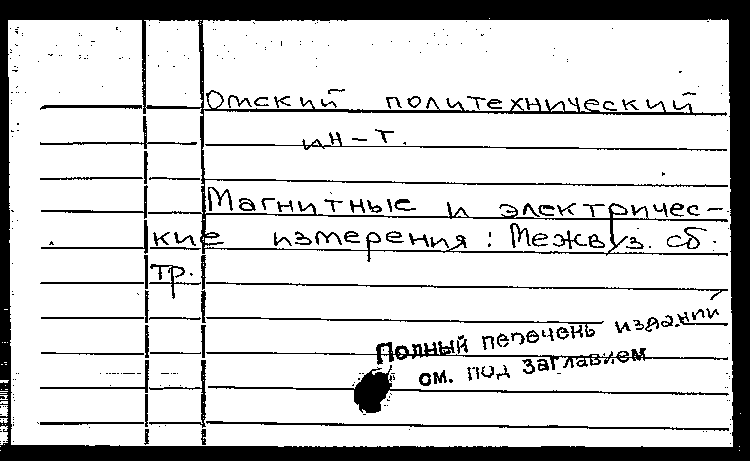 Омский политехнический
ин-т.
Магнитные и электричес-
кие измерения: Межвуз. сб.
тр.
Полный перечень изданий
см. под заглавием